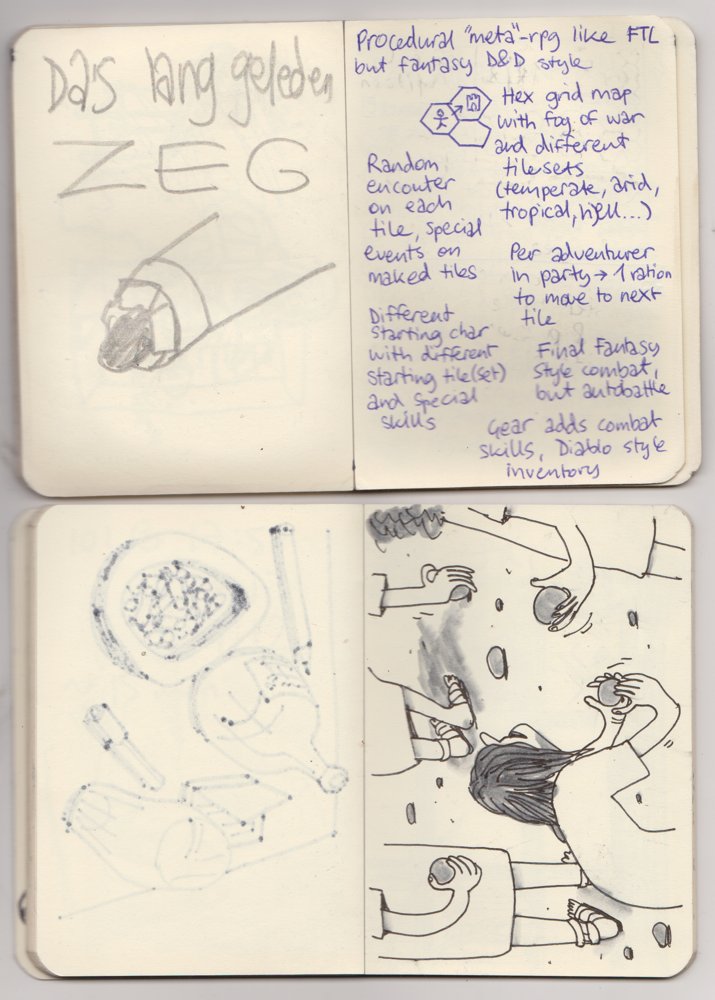 Da's lang geleden
ZEG
Procedural "meta"-rpg like FTL
but fantasy D&D style
Hex grid map
with fog of war
and different
tilesets
(temperate, arid,
tropical, hell...)
Random
encouter
on each
tile, special
events on
maked tiles
Per adventurer
in party → 1 ration
to move to next
tile
Different
starting char
with different
starting tile(set)
and special
skills
Final Fantasy
style combat,
but autobattle
Gear adds combat
skills, Diablo style
inventory